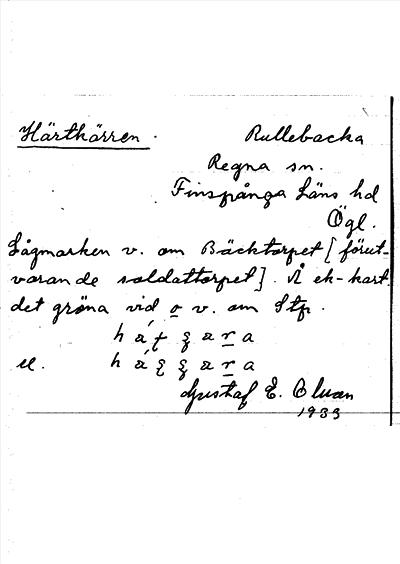 Härtkärren. Rullebacka
Regna sn.
Finspånga Läns hd
Ögl.
Lågmarken v. om Bäcktorpet [förut-
varande soldattorpet]. Å ek-kart.
det gröna vid o v. om Stp.
el.
Gustaf E. Oluan
1933